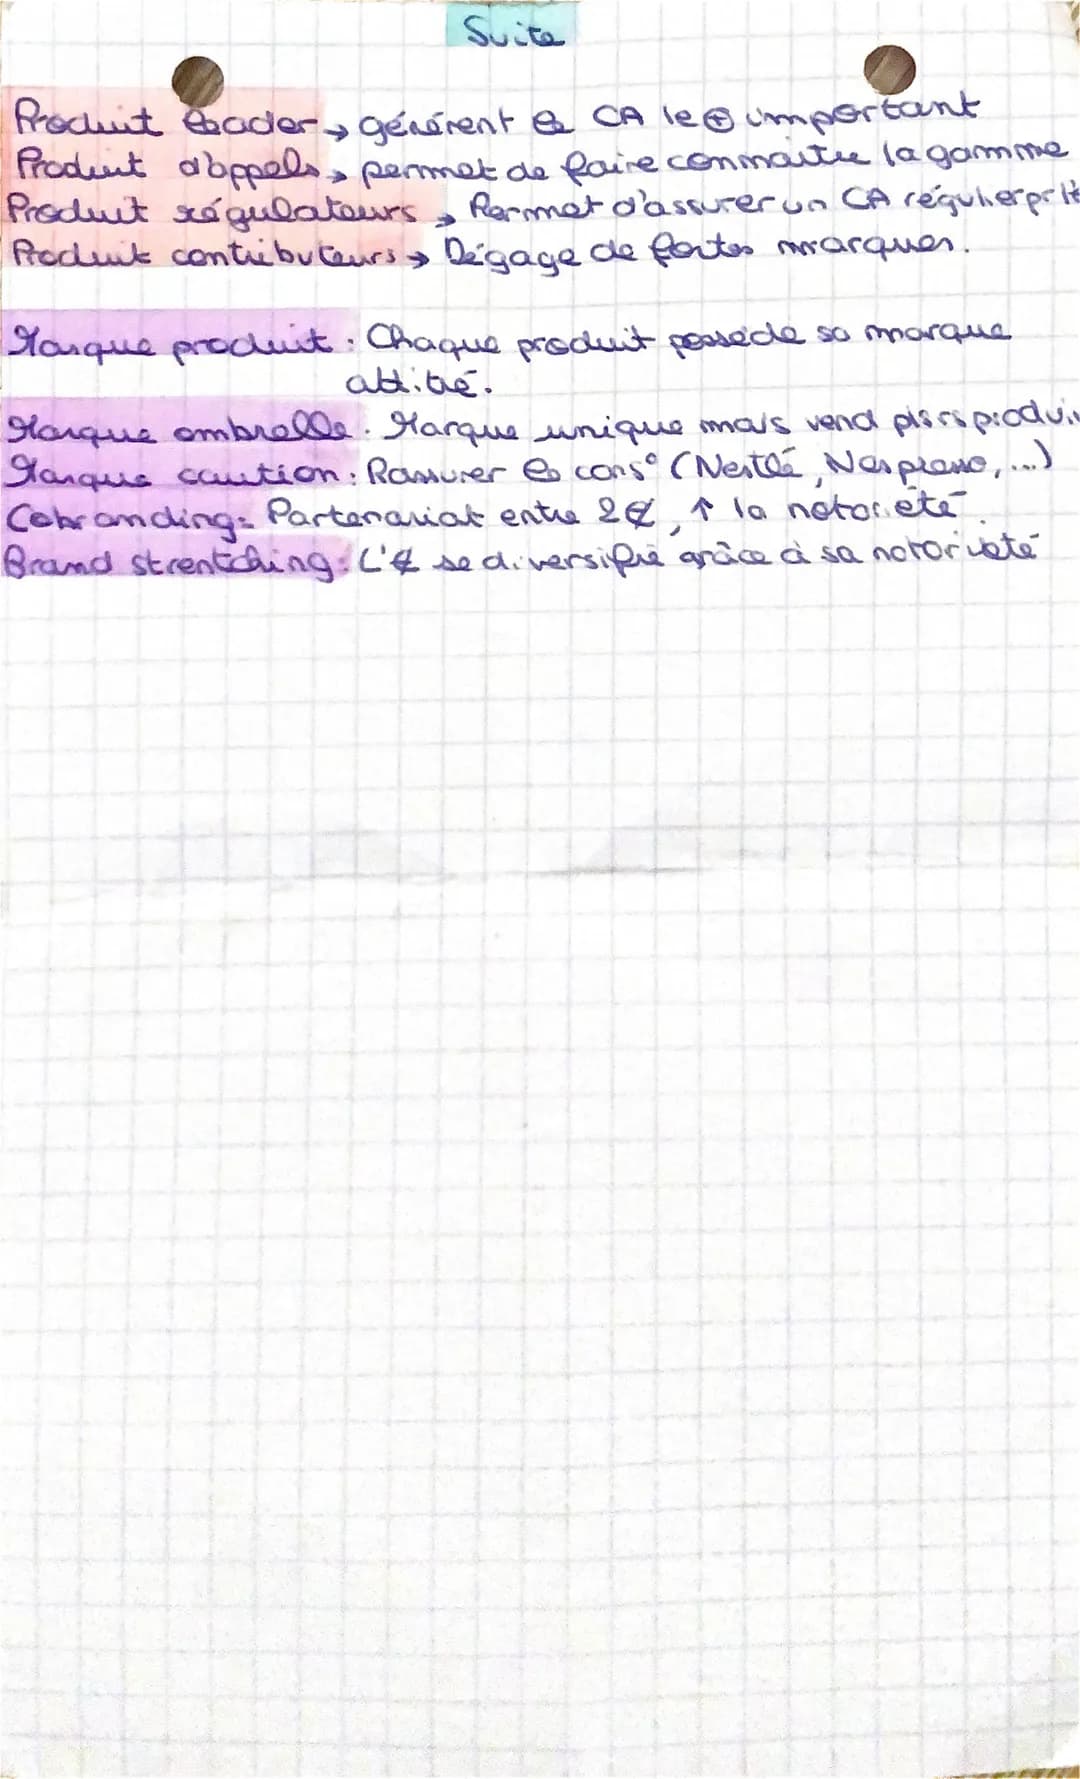 Suite
Produit leader → générent le CA le ⊕ important
Produit d'appels → permet de faire connaitre la gamme
Produit régulateurs → Permet d'assurer un CA régulier pr l't
Produit contributeurs → Dégage de fortes marques.
Marque produit : Chaque produit possède sa marque
attibé.
Marque ombrelle : Marque unique mais vend plsrs produi
Marque caution : Rassurer les cons° (Nestlé, Nespresso, ...)
Cobranding : Partenariat entre 2 €, ↑ la notoriété.
Brand strentching : L'€ se diversifie grâce à sa notoriété